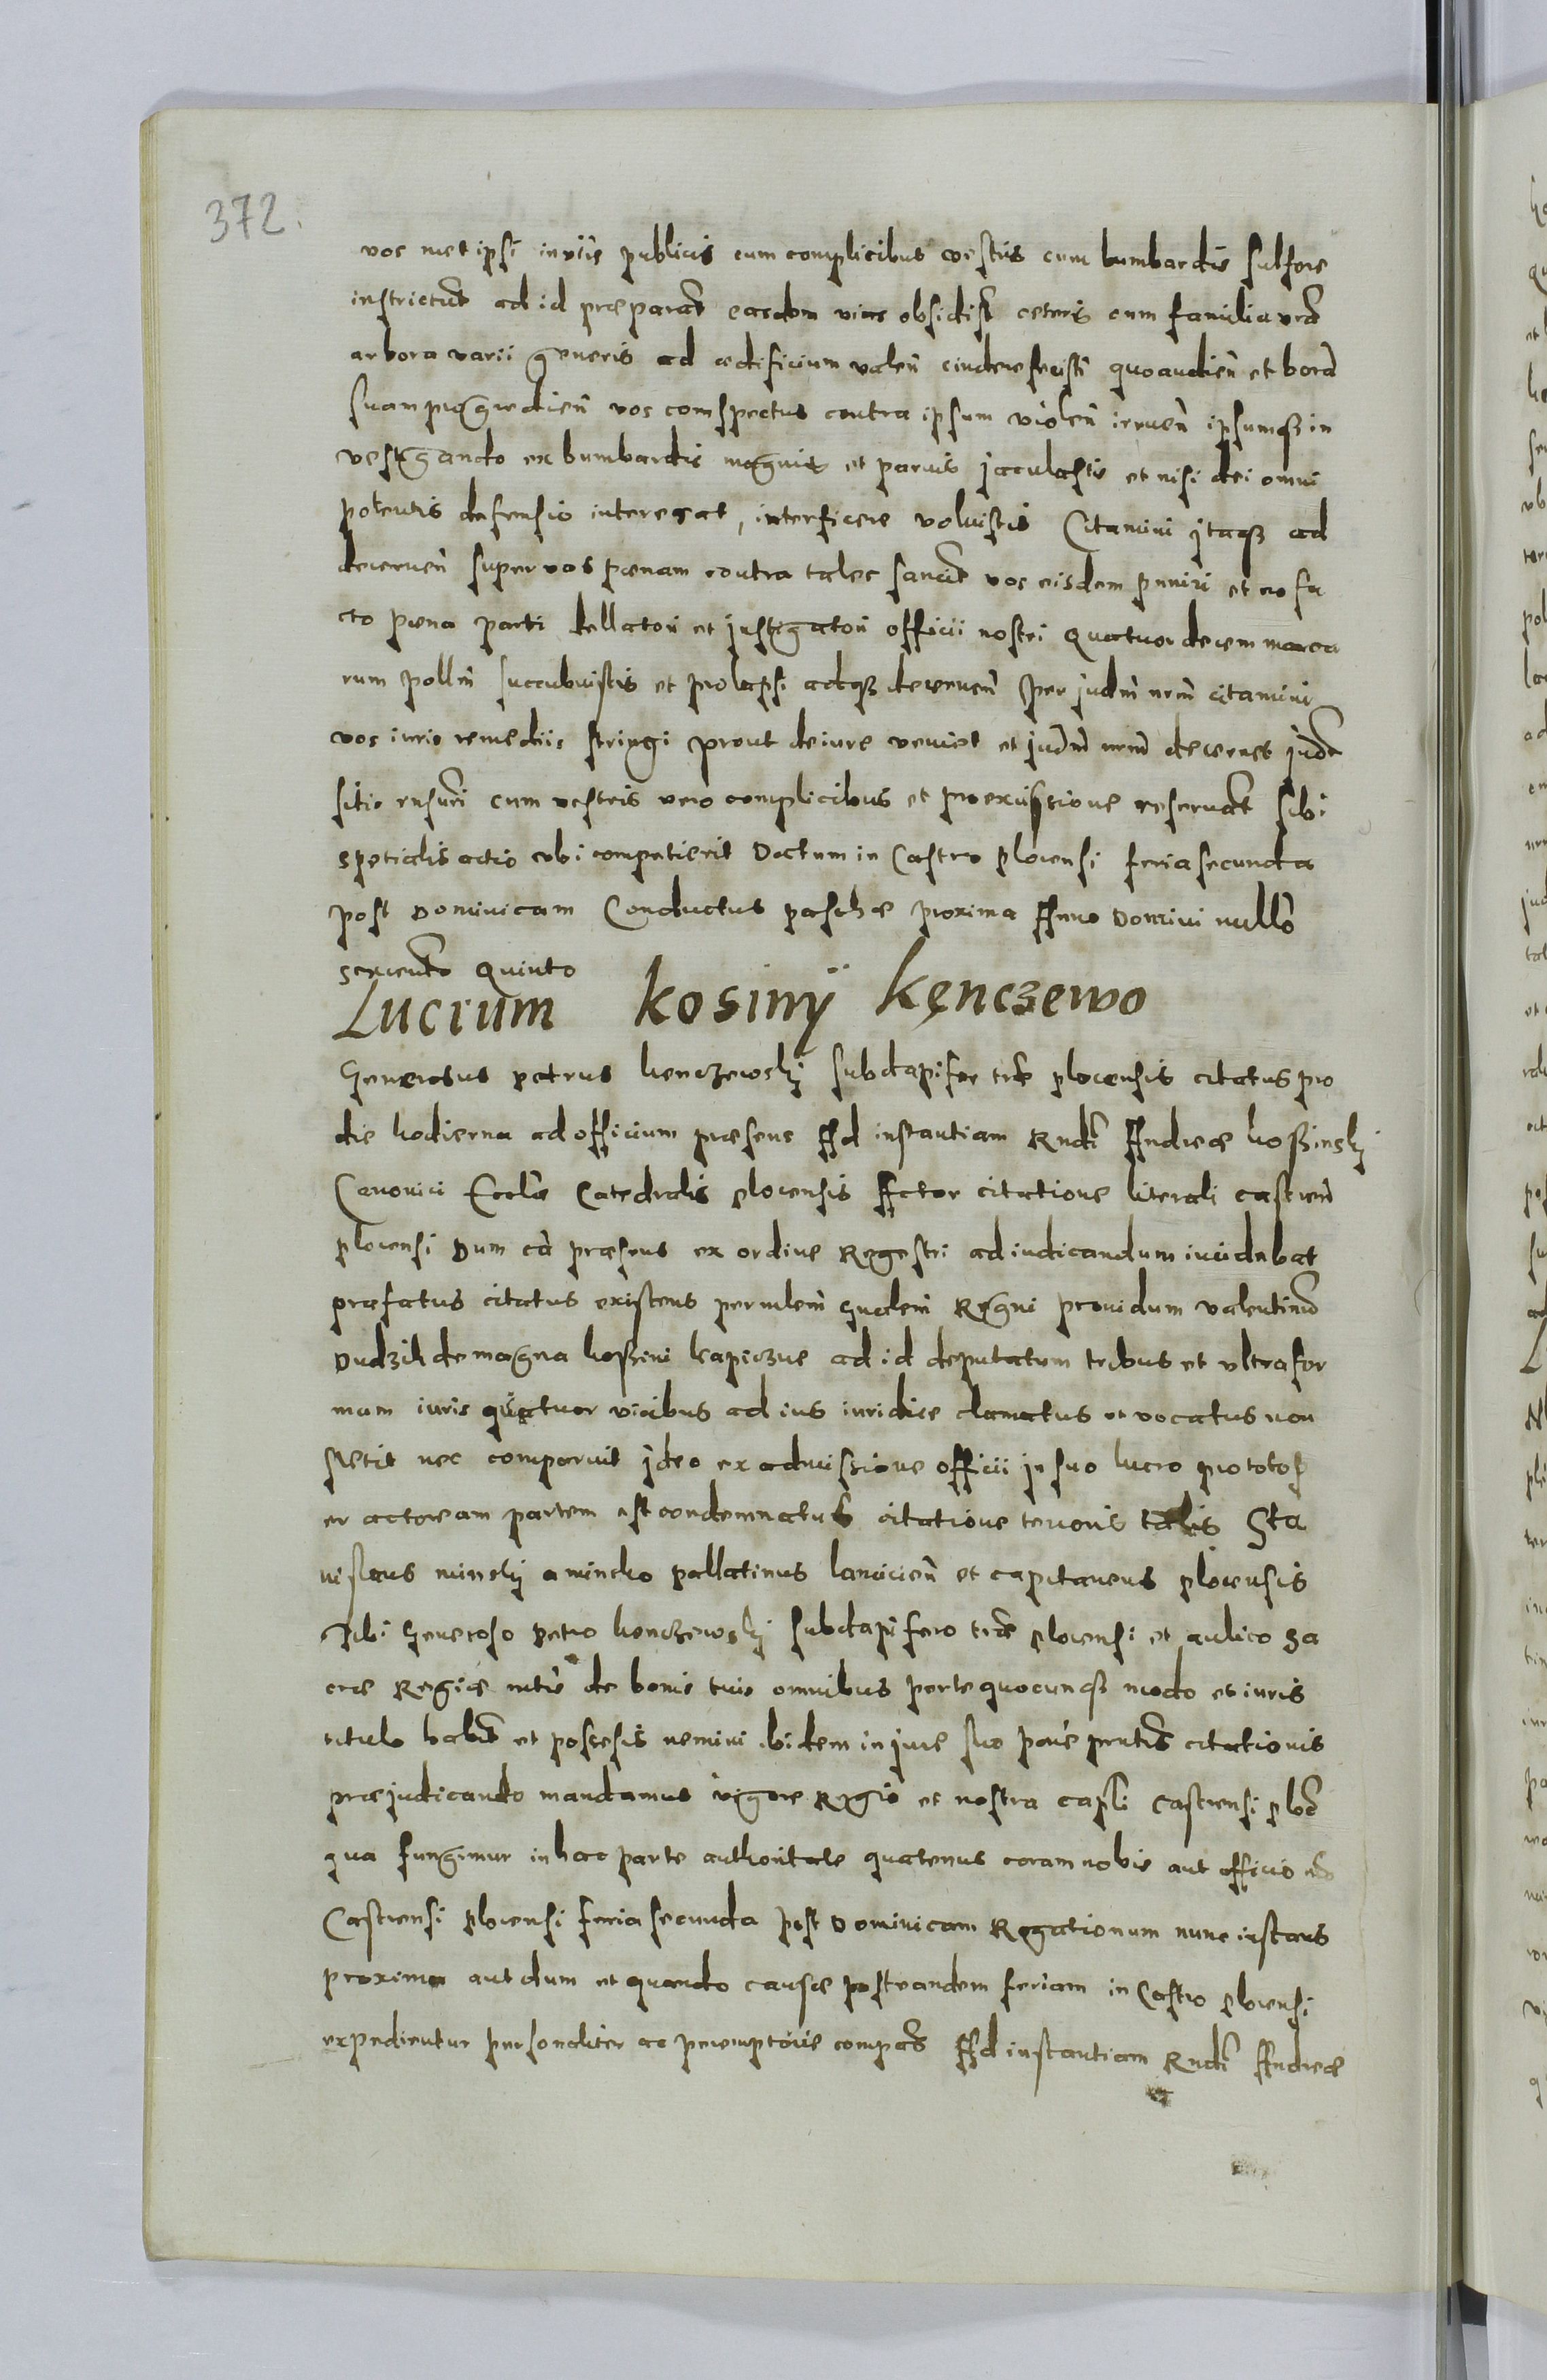 372.
vos met ipsi in viis publicis cum complicibus vestris cum bumbardis sulfore
instrictus ad id præparat easdem vias obsidist ceteris cum familia vra
arbora varii generis ad ædificium valen cindere fecisti quo audien et bora
suam progredien vos comspectus contra ipsum violen irruen ipsumqz in
vestigando ex bumbardis magnis et parvis jaculastis et nisi dei omni
potentis defensio interesat, interficere voluistis Citamini jtaqz ad
decernen super vos pœnam contra tales sancit vos eisdem puniri et eo fa
cto pœna parti dellatori et justigatori officii nostri quatuordecem marca
rum pollin succubuistis et prolapsi adqz decernen per judm nrm citamini
vos iuris remediis stringi prout de iure veniet et judm nrm decernet
cum vestris vero complicibus et pro reservat sibi
spetialis actio ubi competierit Dactum in Castro plocensi feria secunda
post Dominicam Conductus paschæ proxima Anno Domini millo
sexcento quinto
Lucrum kosiny kęnczewo
Generosus petrus kenczewsky subdapifer træ plocensis citatus pro
die hodierna ad officium præsens Ad instantiam Rndi Andreæ koszinsky
Canonici Ecclæ Catedralis plocensis Actor citatione literali castren
plocensi Dum ca præsens ex ordine Regestri ad iudicandum incidebat
præfatus citatus existens per mlem gnalem Regni providum valentinu
Dudzik de magna koszini kapiczne ad id deputatum tribus et ultra for
mam iuris quatuor vicibus ad ius iuridice clamatus et vocatus non
stetit nec comparuit jdeo ex admissione officii in suo lucro pro toto
er actoream partem est condemnatus citatione tenoris talis Sta
nislaus minsky a minsko pallatinus lancicien et capitaneus plocensis
Tibi Generoso petro kenczewsky subdapifero træ plocensi et aulico Sa
cræ Regiæ mtis de bonis tuis omnibus per te quocunqz modo et iuris
titulo habit et possesis nemini ibidem in jure suo pntis citationis
præjudicando mandamus vigore Regio et nostra capli Castrensi ploc
qua fungimur in hac parte authoritate quatenus coram nobis aut officio nro
Castrensi plocensi feria secunda post Dominicam Rogationum nunc instans
proxima aut dum et quando causæ post eandem feriam in Castro plocensi
expedientur personaliter ac peremptorie compas Ad instantiam Rndi Andreæ